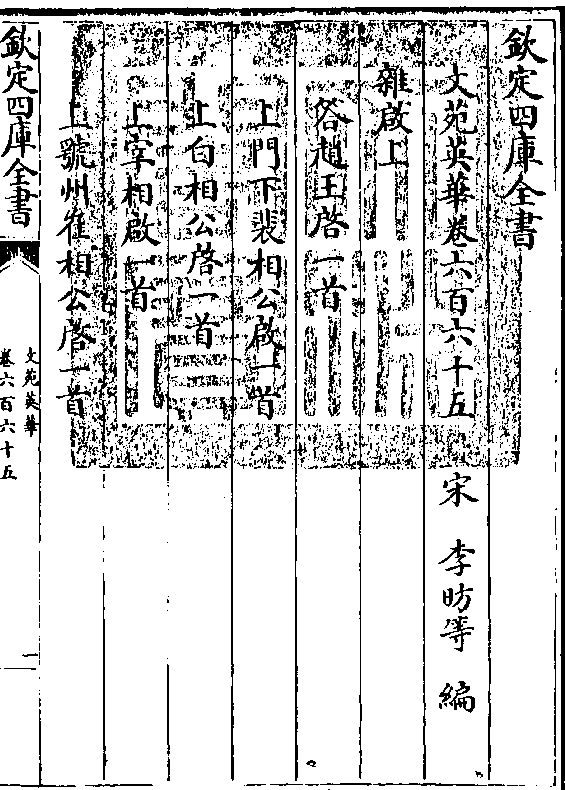 欽定四庫全書
文苑英華卷六百六十五
宋 李昉等 編
雜啟上
答趙王啓一首
上門下裴相公啟一首
上白相公啓一首
上宰相啟一首
上虢州崔相公啓一首
欽定四庫全書
文苑英華
卷六百六十五
一